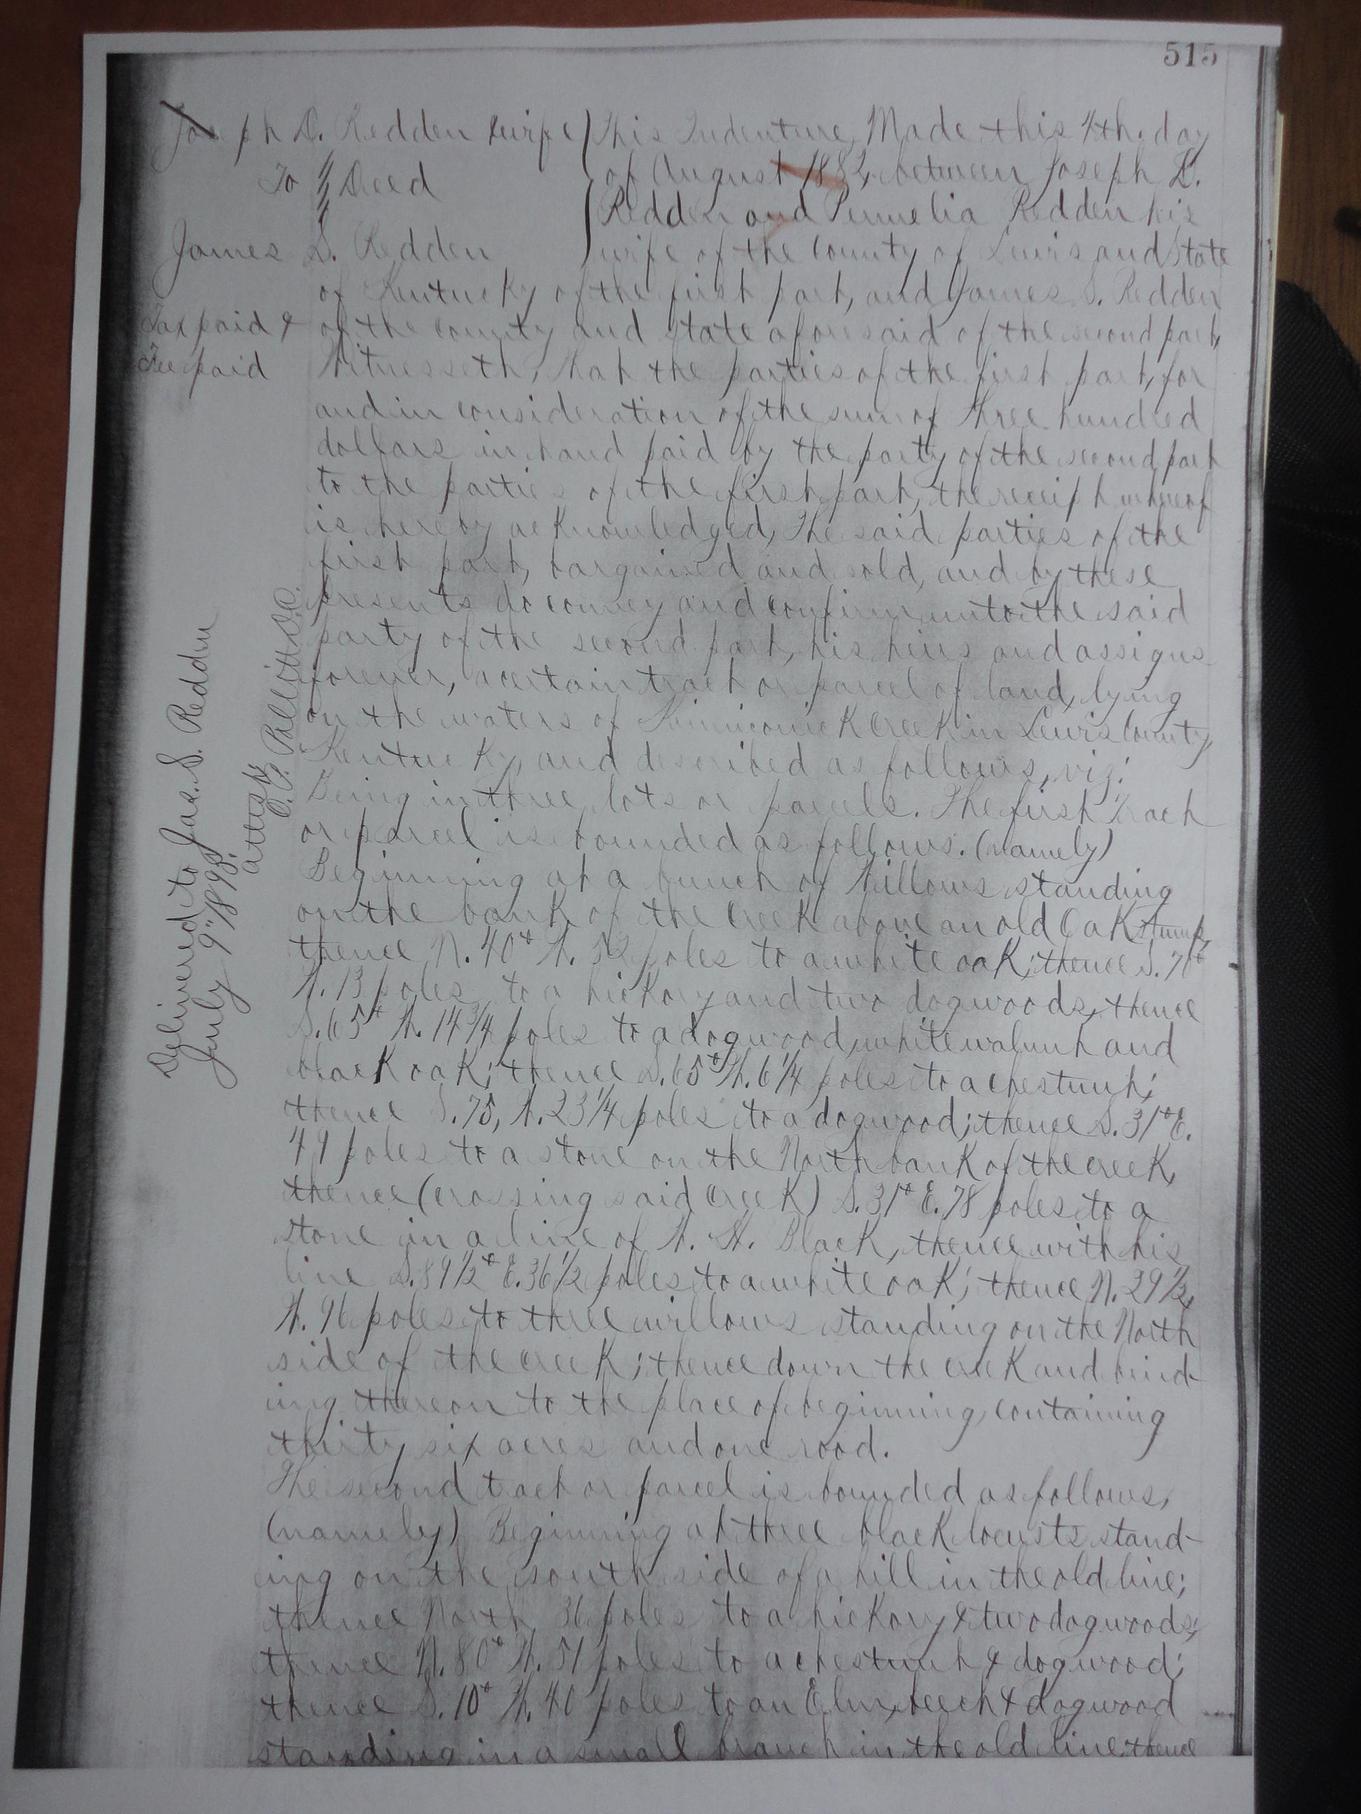 515
Joseph D. Redden & wife
To Deed
James S. Redden
Tax paid &
fee paid
This Indenture, Made this 4th. day
of August 1882, between Joseph D.
Redden and Permelia Redden his
wife of the County of Lewis and State
of Kentucky of the first part, and James S. Redden
of the county and state aforesaid of the second part,
Witnesseth, that the parties of the first part, for
and in consideration of the sum of three hundred
dollars in hand paid by the party of the second part
to the parties of the first part, the receipt whereof
is hereby acknowledged, the said parties of the
first part, bargained and sold, and by these
presents do convey and confirm unto the said
party of the second part, his heirs and assigns
forever, a certain tract or parcel of land, lying
on the waters of Kinniconick Creek in Lewis County
Kentucky, and described as follows, viz:
Being in three lots or parcels. The first tract
or parcel is bounded as follows. (namely)
Beginning at a bunch of willows standing
on the bank of the creek above an old Oak stump,
thence N. 40° W. 52 poles to a white oak; thence S. 70°
W. 13 poles to a hickory and two dogwoods, thence
S. 65° W. 14 3/4 poles to a dogwood, white walnut and
black oak; thence S. 65° W. 6 1/4 poles to a chestnut;
thence S. 75, W. 23 1/4 poles to a dogwood; thence S. 31° E.
49 poles to a stone on the North bank of the creek,
thence (crossing said creek) S. 31° E. 78 poles to a
stone in a line of W. H. Black, thence with his
line S. 89 1/2° E. 36 1/2 poles to a white oak; thence N. 29 1/2,
W. 96 poles to three willows standing on the North
side of the creek; thence down the creek and bind-
ing thereon to the place of beginning, containing
thirty six acres and one rood.
The second tract or parcel is bounded as follows,
(namely) Beginning at three black locusts stand-
ing on the south side of a hill in the old line;
thence North 36 poles to a hickory & two dogwoods;
thence N. 80° W. 51 poles to a chestnut & dogwood;
thence S. 10° W. 40 poles to an Elm, beech & dogwood
standing in a small branch in the old line, thence
Delivered to Jas. S. Redden
July 9" 1898.
Attest